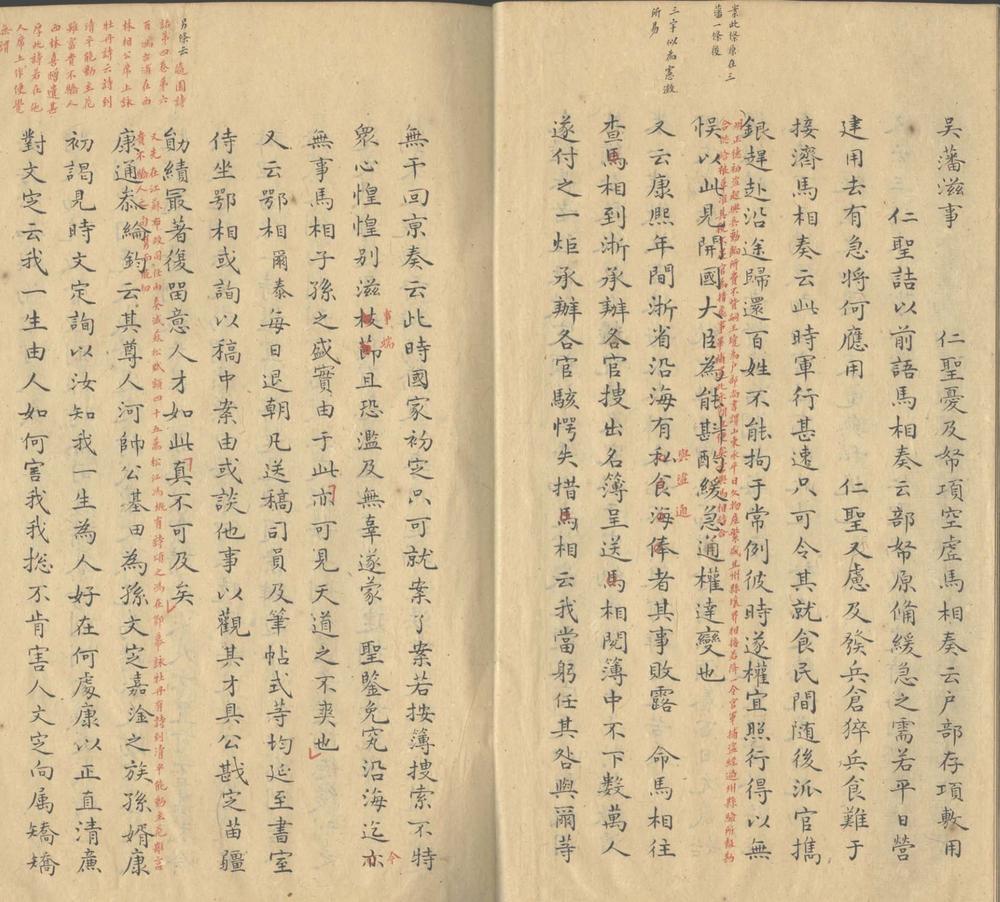 吳藩滋事　　　仁聖憂及帑項空虛馬相奏云户部存項敷用
仁聖詰以前語馬相奏云部帑原俻緩急之需若平日營
建用去有急將何應用　　　仁聖又慮及發兵倉猝兵食難于
接濟馬相奏云此時軍行甚速只可令其就食民間随後派官携
銀趕赴沿途歸還百姓不能拘于常例彼時遂權宜照行得以無
悞以此見開國大臣為能斟酌緩急通權達變也
又云康熙年間浙省沿海有私食海俸者其事敗露　命馬相往
查馬相到浙承辦各官搜出名簿呈送馬相閱簿中不下数萬人
遂付之一炬承辦各官駭愕失措馬相云我當躬任其咎與爾等
案此條原在三
藩一條後
三字以高憲澈
所易
與盜通
無干回京奏云此時國家初定只可就案了案若按簿搜索不特
衆心惶惶别滋枝節且恐濫及無辜遂蒙　聖鑒免究沿海迄亦
無事馬相子孫之盛實由于此亦可見天道之不爽也
又云鄂相爾泰每日退朝凡送稿司員及筆帖式等均延至書室
侍坐鄂相或詢以稿中案由或談他事以觀其才具公戡定苗疆
勛績最著後留意人才如此真不可及矣
康通叅綸鈞云其尊人河帥公基田為孫文定嘉淦之族孫婿康
初謁見時文定詢以汝知我一生為人好在何處康以正直清廉
對文定云我一生由人如何害我我捴不肯害人文定向属矯矯
事端
今
另條云 隨園詩
話第四卷第六
百 西
林相公席上詠
牡丹詩云詩到
清平能動主花
雖富貴不驕人
西林喜贈遺甚
厚此詩若在他
人席上作便覺
無謂